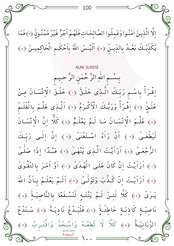 100
إِلَّا الَّذِينَ اٰمَنُوا وَعَمِلُوا الصَّالِحَاتِ فَلَهُمْ اَجْرٌ غَيْرُ مَمْنُونٍ ﴿٦﴾ فَمَا
يُكَذِّبُكَ بَعْدُ بِالدِّينِ ﴿٧﴾ اَلَيْسَ اللّٰهُ بِاَحْكَمِ الْحَاكِمِينَ ﴿٨﴾
ALAK SURESİ
بِسْمِ اللّٰهِ الرَّحْمٰنِ الرَّحِيمِ
اِقْرَأْ بِاسْمِ رَبِّكَ الَّذِى خَلَقَ ﴿١﴾ خَلَقَ الْاِنْسَانَ مِنْ
عَلَقٍ ﴿٢﴾ اِقْرَأْ وَرَبُّكَ الْاَكْرَمُ ﴿٣﴾ اَلَّذِى عَلَّمَ بِالْقَلَمِ
﴿٤﴾ عَلَّمَ الْاِنْسَانَ مَا لَمْ يَعْلَمْ ﴿٥﴾ كَلَّا اِنَّ الْاِنْسَانَ
لَيَطْغٰى ﴿٦﴾ اَنْ رَاٰهُ اسْتَغْنٰى ﴿٧﴾ اِنَّ اِلٰى رَبِّكَ
الرُّجْعٰى ﴿٨﴾ اَرَاَيْتَ الَّذِى يَنْهٰى ﴿٩﴾ عَبْدًا اِذَا صَلّٰى
﴿١٠﴾ اَرَاَيْتَ اِنْ كَانَ عَلَى الْهُدٰى ﴿١١﴾ اَوْ اَمَرَ بِالتَّقْوٰى
﴿١٢﴾ اَرَاَيْتَ اِنْ كَذَّبَ وَتَوَلّٰى ﴿١٣﴾ اَلَمْ يَعْلَمْ بِاَنَّ اللّٰهَ
يَرٰى ﴿١٤﴾ كَلَّا لَئِنْ لَمْ يَنْتَهِ لَنَسْفَعًا بِالنَّاصِيَةِ ﴿١٥﴾
نَاصِيَةٍ كَاذِبَةٍ خَاطِئَةٍ ﴿١٦﴾ فَلْيَدْعُ نَادِيَهُ ﴿١٧﴾ سَنَدْعُ
الزَّبَانِيَةَ ﴿١٨﴾ كَلَّا لَا تُطِعْهُ وَاسْجُدْ وَاقْتَرِبْ ﴿١٩﴾
١٠٠